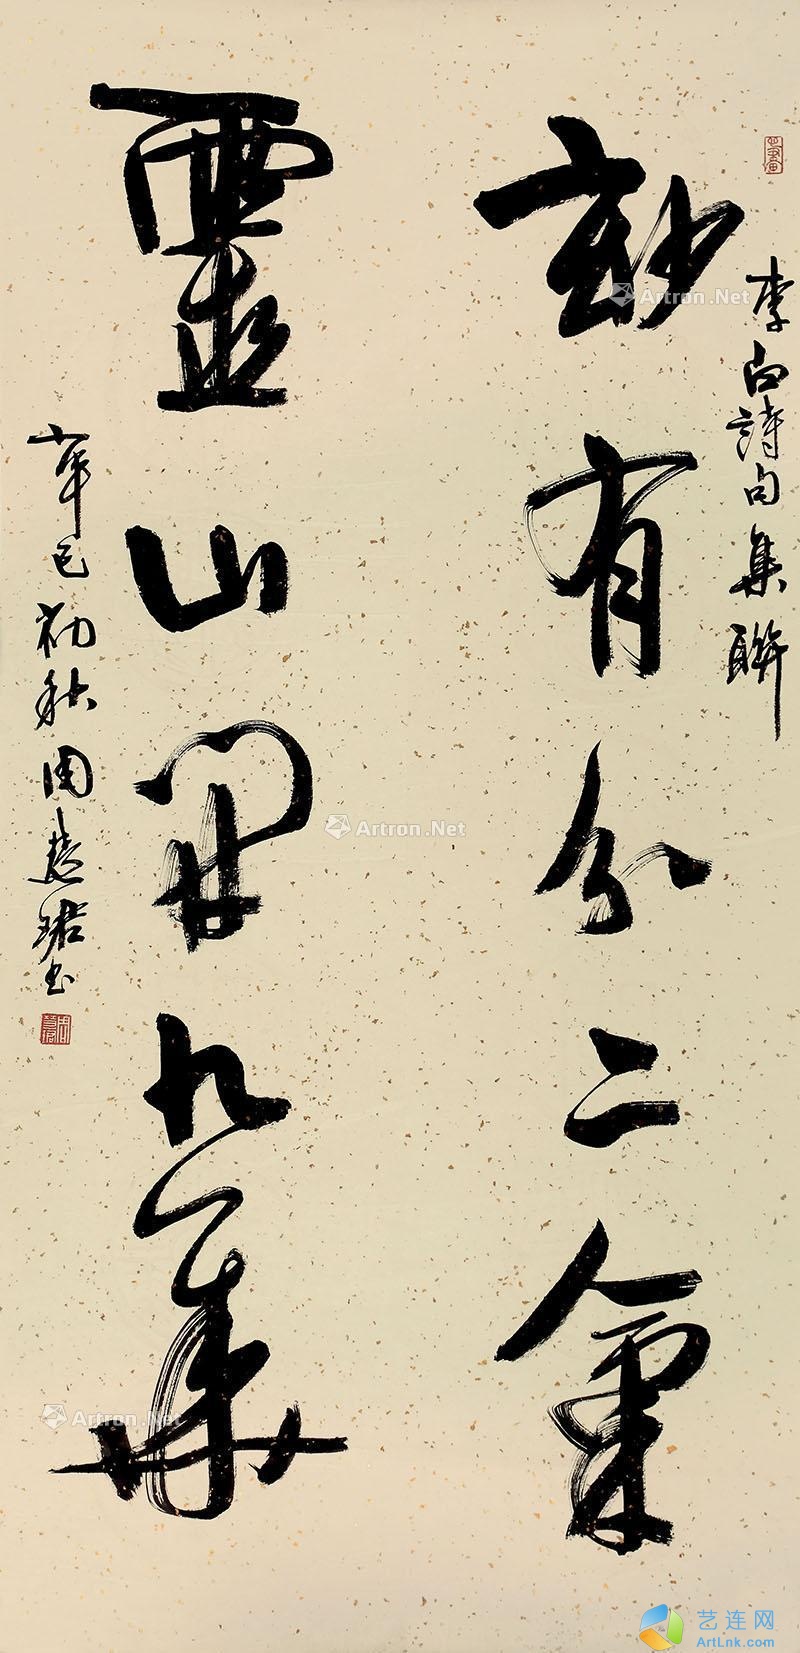 李白詩句集聯
妙有分二氣
靈山開九華
辛巳初秋周慧珺书
Artron.Net
Artron.Net
Artron.Net
艺连网
ArtLnk.com